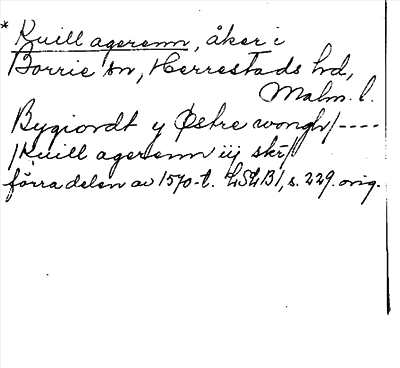 * Kuill agerenn, åker i
Borrie sn, Herrestads hd,
Malm. l.
Bygiordt y Østre wongh/----
/Kuill agerenn iij skr/
förra delen av 1570-t. LSLB1, s. 229. orig.